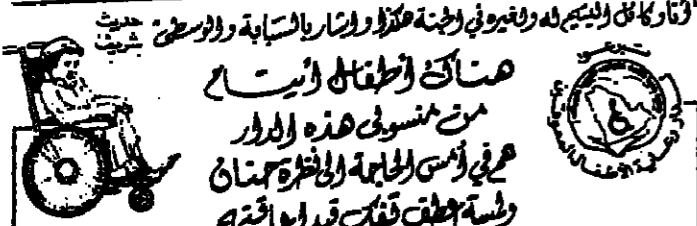 أنا وكافل اليتيم له ولغيره في الجنة هكذا وأشار بالسبابة والوسطى
حديث شريف
هناك أطفال أيتام
من منسوبي هذه الدار
هم في أمس الحاجة الى نظرة حنان
ولمسة عطف تفك قيد إعاقته